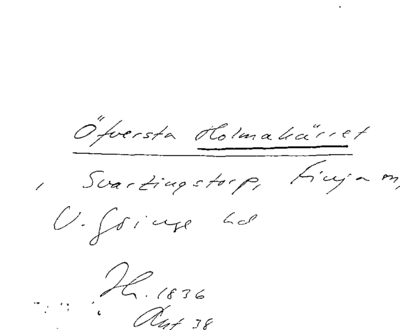 Öfversta Holmakärret
, Svartingstorp, Finja sn,
V. Göinge hd
Jh. 1836
Ant 38